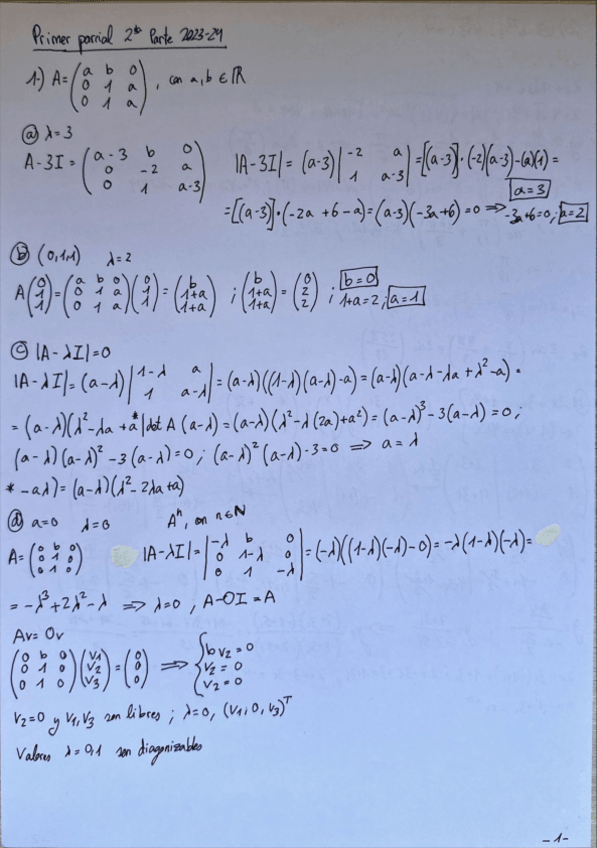 Primer parcial 2ª Parte 2023-24
1-) A = (a b 0; 0 1 a; 0 1 a), con a, b ∈ ℝ
(a) λ=3
A-3I = (a-3 b 0; 0 -2 a; 0 1 a-3) |A-3I| = (a-3) |-2 a; 1 a-3| = [(a-3)]·(-2)(a-3)-(a)(1) =
= [(a-3)]·(-2a+6-a) = (a-3)(-3a+6) = 0 ⇒ a=3
-3a+6=0; a=2
(b) (0,1,1) λ=2
A(0; 1; 1) = (a b 0; 0 1 a; 0 1 a)(0; 1; 1) = (b; 1+a; 1+a) ; (b; 1+a; 1+a) = (0; 2; 2) ; b=0
1+a=2; a=1
(c) |A-λI|=0
|A-λI| = (a-λ) |1-λ a; 1 a-λ| = (a-λ)((1-λ)(a-λ)-a) = (a-λ)(a-λ-λa+λ²-a) =
= (a-λ)(λ²-λa+a* |dot A (a-λ) = (a-λ)(λ²-λ(2a)+a²) = (a-λ)³-3(a-λ) = 0;
(a-λ)(a-λ)²-3(a-λ)=0; (a-λ)²(a-λ)-3=0 ⇒ a=λ
* -aλ) = (a-λ)(λ²-2λa+a)
(d) a=0 λ=0 Aⁿ, con n∈ℕ
A = (0 b 0; 0 1 0; 0 1 0) |A-λI| = |-λ b 0; 0 1-λ 0; 0 1 -λ| = (-λ)((1-λ)(-λ)-0) = -λ(1-λ)(-λ) =
= -λ³+2λ²-λ ⇒ λ=0, A-0I=A
Av = 0v
(0 b 0; 0 1 0; 0 1 0)(v₁; v₂; v₃) = (0; 0; 0) ⇒ {bv₂=0; v₂=0; v₂=0
v₂=0 y v₁,v₃ son libres; λ=0, (v₁,0,v₃)ᵀ
Valores λ=0,1 son diagonizables
-1-